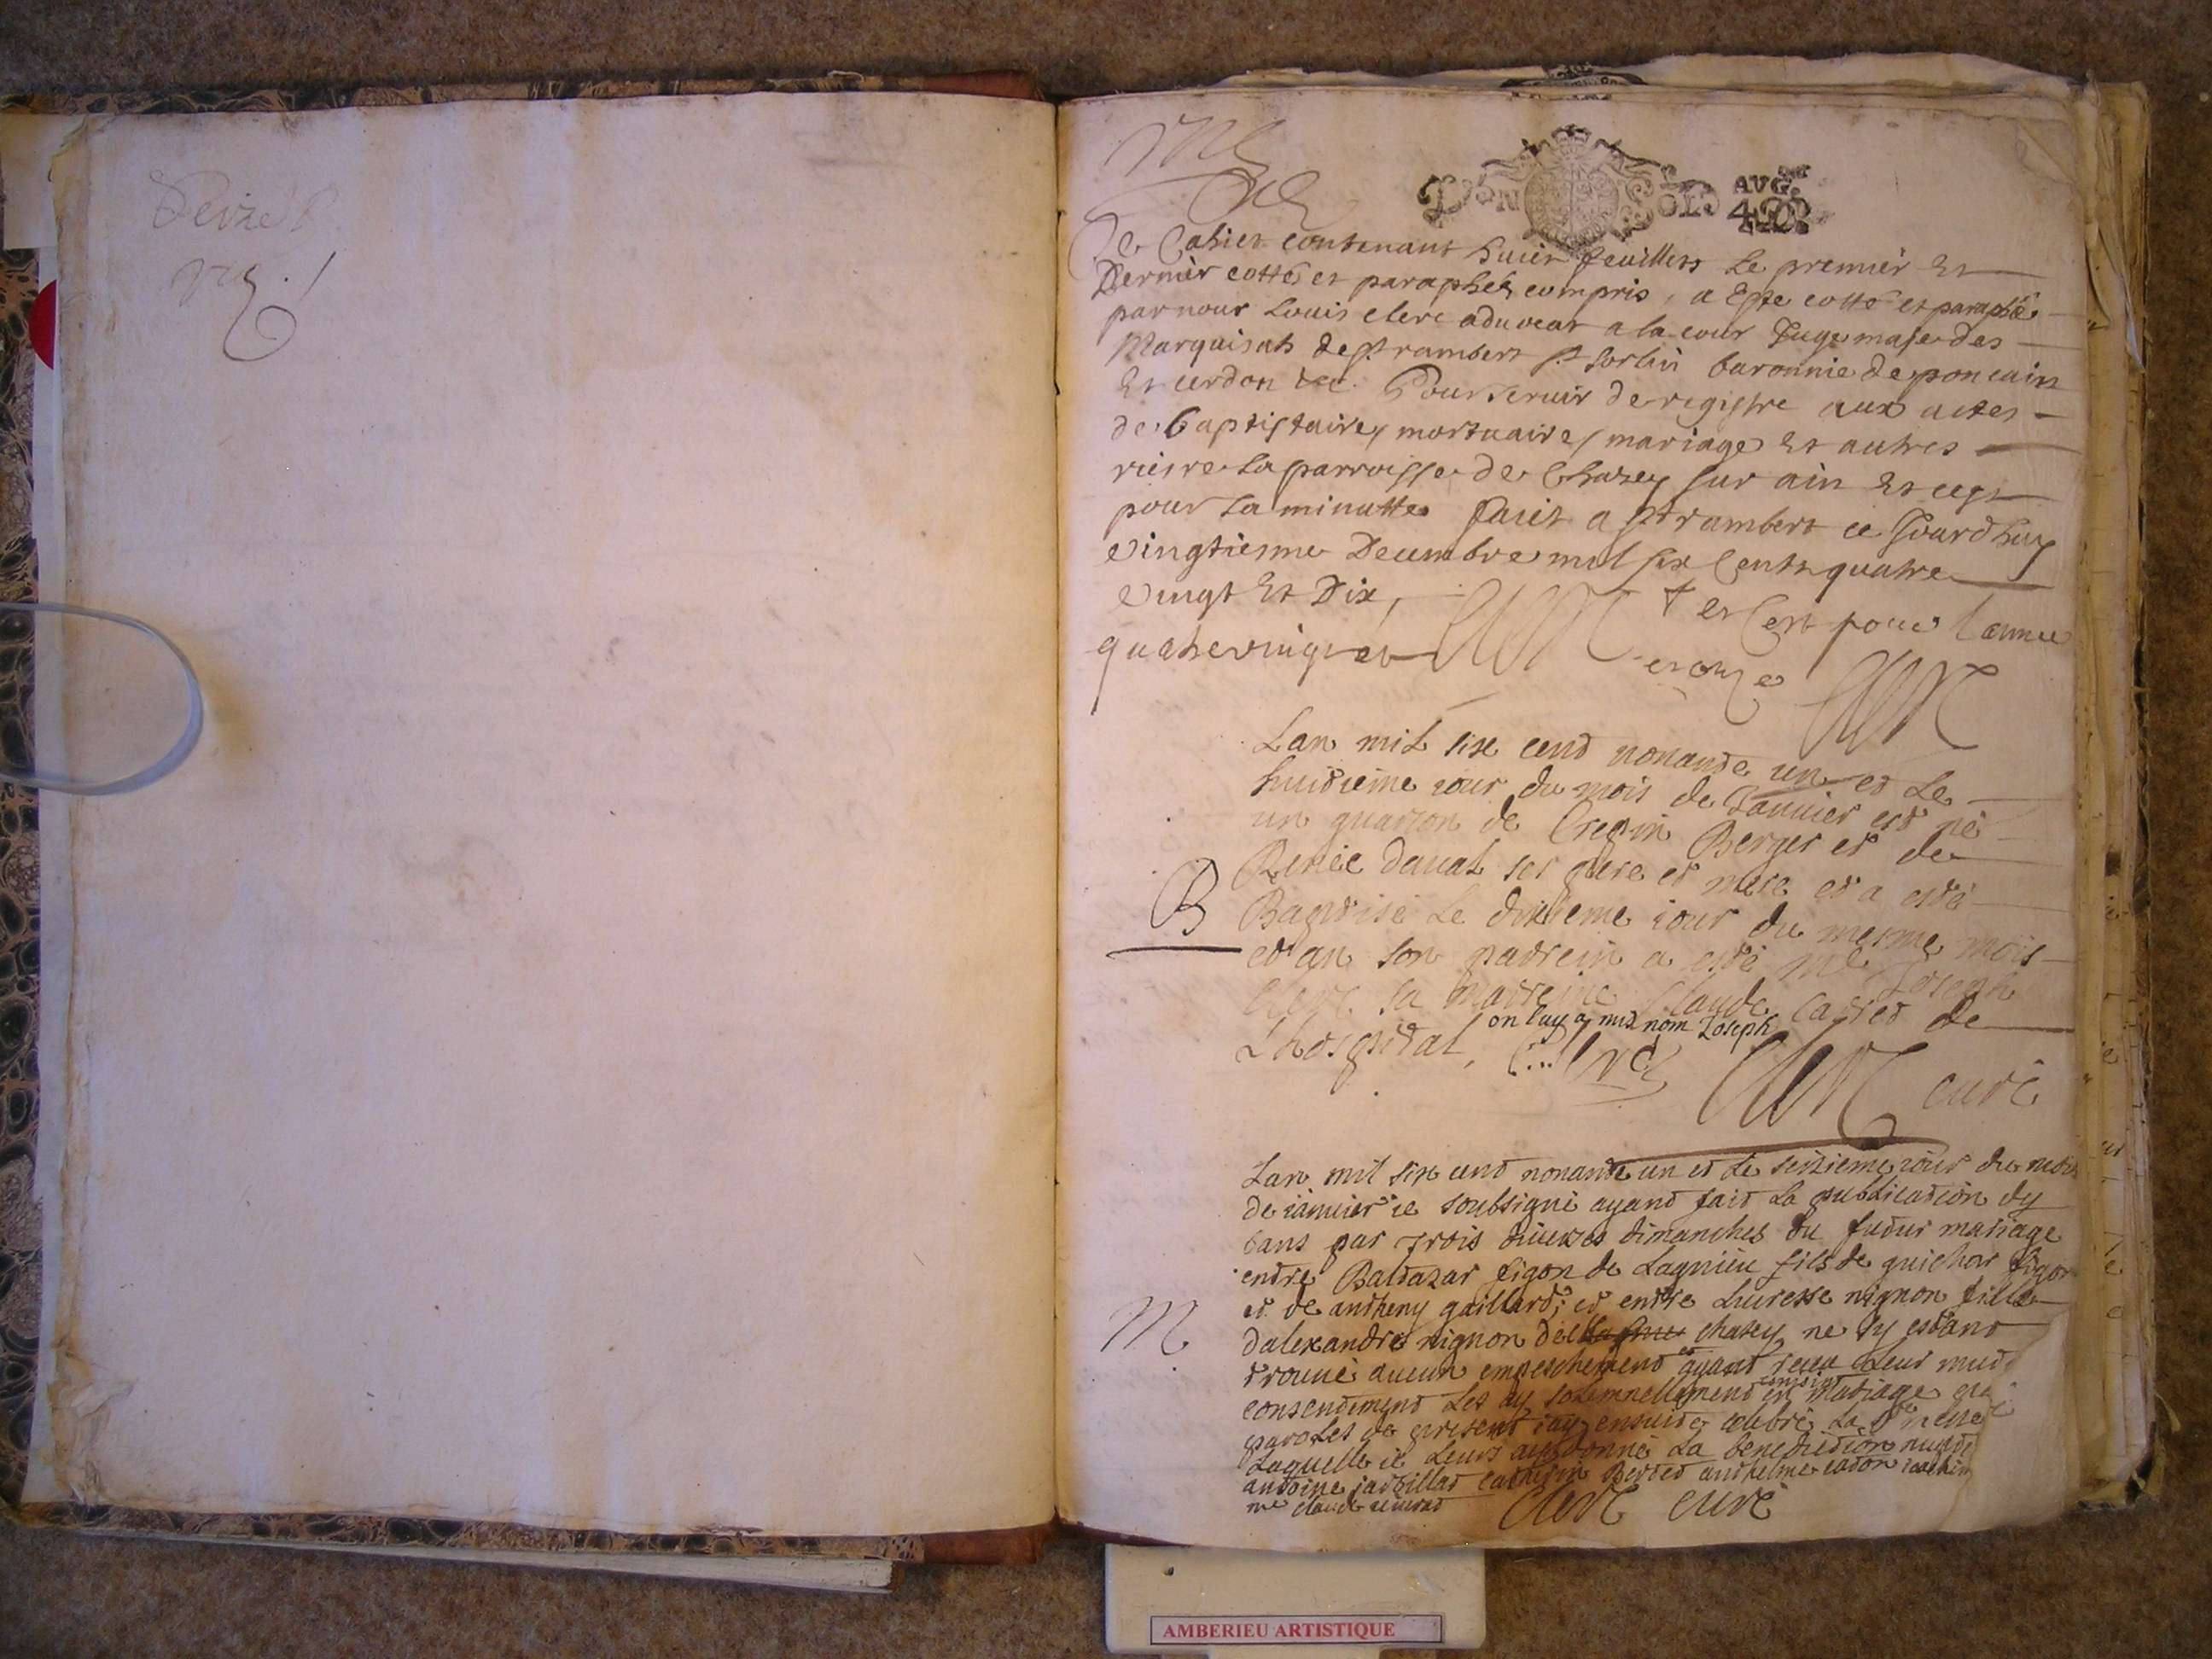 Un SOL AUG.
Ce Cahier contenant huict feuillets le premier Et
Dernier cottés et paraphés compris, a Este cotté et paraphé
par nous Louis clerc aduocat a la cour Juge maje des
Marquisats de St rambert St sorlin baronnie de poncain
Et cerdon &c. Pour seruir de registre aux actes
de baptistaires mortuaires mariages Et autres
riere la parroisse de Chazey sur ain Et cest
pour la minutte faict a St rambert ce Jourdhuy
vingtiesme Decembre mil six Cents quatre
vingt Et Dix, et Cest pour lannee
quatrevingt et onze
Lan mil six cent nonante un et Le
huictieme iour du mois de Januier est né
un guarcon de Crepin Berger et de
Renée daual ses pere et mere et a esté
B Baptisé Le dixieme iour du mesme mois
et an son parrein a esté me Joseph
clerc sa marreine Claude Carret de
on luy a mis nom Joseph
Lhospital,
Clerc curé
Lan mil six cent nonante un et Le seizieme iour du mois
de ianuier ie soubsigné ayant fait La publication dy
bans par trois diuerses dimanches du futur mariage
entre Baltazar figon de Lagnieu fils de guichar figon
et de antheny gaillard; et entre Lucresse nignon fille
M dalexandre nignon de chasey ne sy estant
trouué aucun empeschement et ayant receu Leur mut
conioint
consentement Les ay solemnellement en Mariage
paroles de present iay ensuite celebré La Ste messe
Laquelle ie Leurs ay donné La benediction
antoine iarbillat Bertet anthelme
me claude
Clerc curé
AMBERIEU ARTISTIQUE